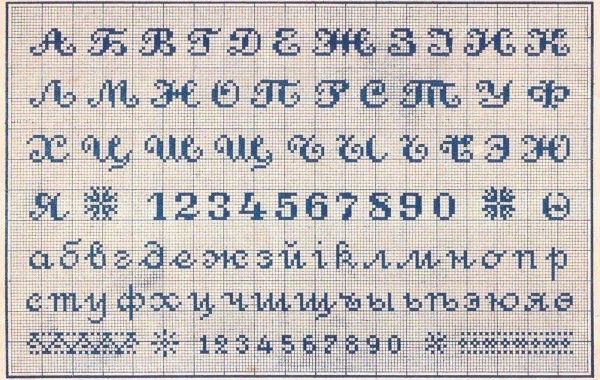 А Б В Г Д Е Ж З І И К
Л М Н О П Р С Т У Ф
Х Ц Ш Щ Ч Ы Ъ Ѣ Э Ю
Я 1234567890 Ѳ
абвгдежзйіклмнопр
стуфхцчшщъыьѣэюяѳ
1234567890